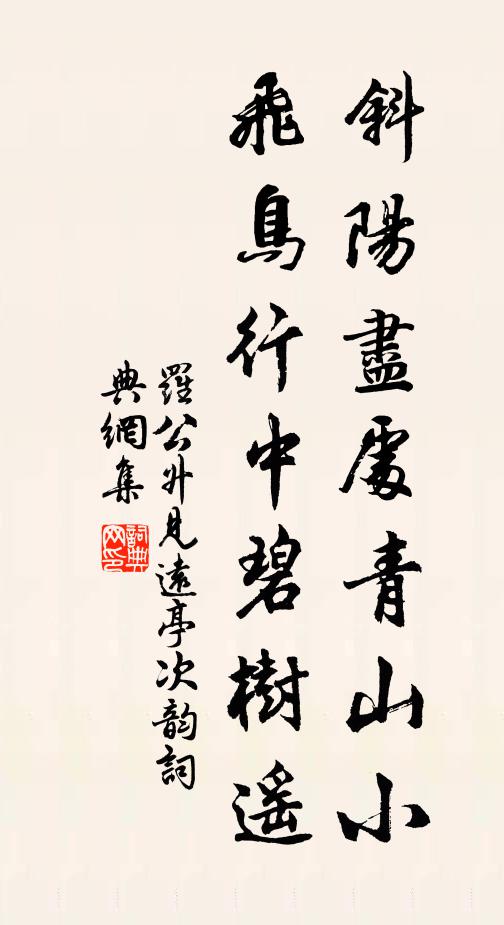 斜陽盡處青山小
飛鳥行中碧樹遥
羅公升見遠亭次韵詞
典網集
詞典
网印